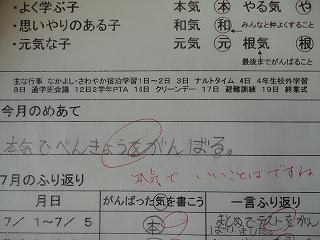 ・よく学ぶ子 本気 本 やる気 や
・思いやりのある子 和気 和 みんなと仲よくすること
・元気な子 元気 元 根気 根
最後までがんばること
主な行事 なかよし・さわやか宿泊学習1日〜2日 3日 ナルトタイム 4日 4年生校外学習
8日 通学班会議 12日2学年PTA 16日 クリーンデー 17日 避難訓練 19日 終業式
今月のめあて
本気でべんきょうをがんばる。
本気で いいことばですね
7月のふり返り
月日 がんばった気を書こう 一言ふり返り
7/1〜7/5 本 まとめでテストをがん
ばりました。